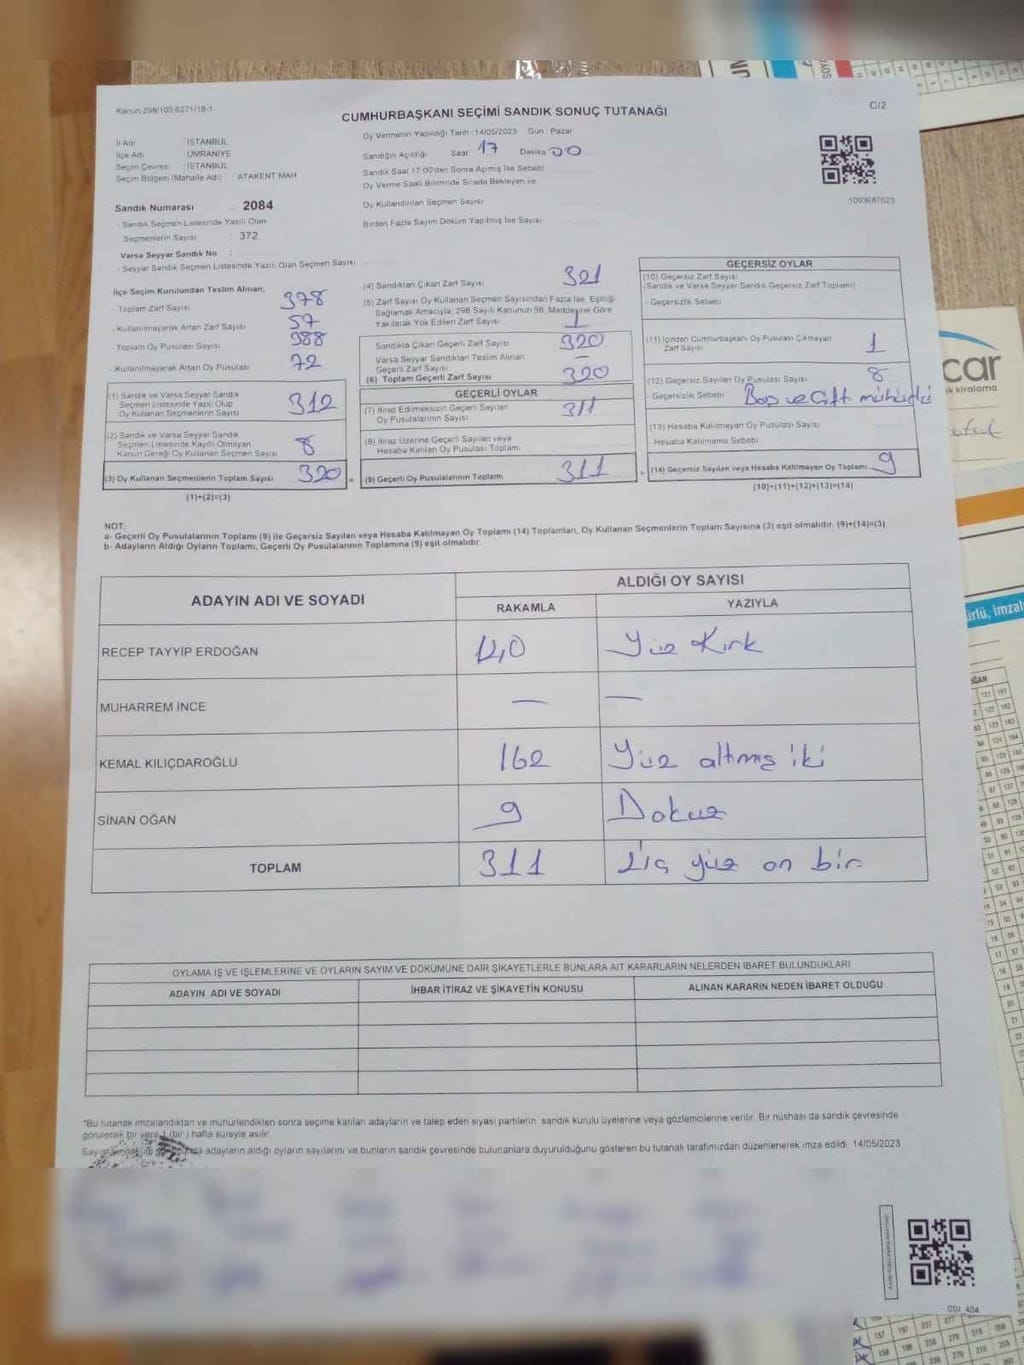 Kanun 298/105 6271/18-1
C/2
CUMHURBAŞKANI SEÇİMİ SANDIK SONUÇ TUTANAĞI
İl Adı : İSTANBUL
İlçe Adı : ÜMRANİYE
Seçim Çevresi : İSTANBUL
Seçim Bölgesi (Mahalle Adı) : ATAKENT MAH
Sandık Numarası : 2084
- Sandık Seçmen Listesinde Yazılı Olan
Seçmenlerin Sayısı : 372
Varsa Seyyar Sandık No :
- Seyyar Sandık Seçmen Listesinde Yazılı Olan Seçmen Sayısı
Oy Vermenin Yapıldığı Tarih :14/05/2023 Gün : Pazar
Sandığın Açıldığı Saat 17 Dakika 00
Sandık Saat 17.00'den Sonra Açılmış İse Sebebi
Oy Verme Saati Bitiminde Sırada Bekleyen ve
Oy Kullandırılan Seçmen Sayısı
Birden Fazla Sayım Döküm Yapılmış İse Sayısı
1093687623
İlçe Seçim Kurulundan Teslim Alınan;
- Toplam Zarf Sayısı 378
- Kullanılmayarak Artan Zarf Sayısı 57
Toplam Oy Pusulası Sayısı 388
- Kullanılmayarak Artan Oy Pusulası 72
(1) Sandık ve Varsa Seyyar Sandık
Seçmen Listesinde Yazılı Olup
Oy Kullanan Seçmenlerin Sayısı 312
(2) Sandık ve Varsa Seyyar Sandık
Seçmen Listesinde Kayıtlı Olmayan
Kanun Gereği Oy Kullanan Seçmen Sayısı 8
(3) Oy Kullanan Seçmenlerin Toplam Sayısı 320
(1)+(2)=(3)
(4) Sandıktan Çıkan Zarf Sayısı 321
(5) Zarf Sayısı Oy Kullanan Seçmen Sayısından Fazla İse, Eşitliği
Sağlamak Amacıyla, 298 Sayılı Kanunun 98. Maddesine Göre
Yakılarak Yok Edilen Zarf Sayısı 1
Sandıkta Çıkan Geçerli Zarf Sayısı 320
Varsa Seyyar Sandıktan Teslim Alınan
Geçerli Zarf Sayısı —
(6) Toplam Geçerli Zarf Sayısı 320
GEÇERLİ OYLAR
(7) İtiraz Edilmeksizin Geçerli Sayılan
Oy Pusulalarının Sayısı 311
(8) İtiraz Üzerine Geçerli Sayılan veya
Hesaba Katılan Oy Pusulası Toplamı
(9) Geçerli Oy Pusulalarının Toplamı 311
GEÇERSİZ OYLAR
(10) Geçersiz Zarf Sayısı
(Sandık ve Varsa Seyyar Sandık Geçersiz Zarf Toplamı)
- Geçersizlik Sebebi
(11) İçinden Cumhurbaşkanı Oy Pusulası Çıkmayan
Zarf Sayısı 1
(12) Geçersiz Sayılan Oy Pusulası Sayısı 8
- Geçersizlik Sebebi Boş ve Çift mühürlü
(13) Hesaba Katılmayan Oy Pusulası Sayısı
- Hesaba Katılmama Sebebi
(14) Geçersiz Sayılan veya Hesaba Katılmayan Oy Toplamı 9
(10)+(11)+(12)+(13)=(14)
NOT:
a- Geçerli Oy Pusulalarının Toplamı (9) ile Geçersiz Sayılan veya Hesaba Katılmayan Oy Toplamı (14) Toplamları, Oy Kullanan Seçmenlerin Toplam Sayısına (3) eşit olmalıdır. (9)+(14)=(3)
b- Adayların Aldığı Oyların Toplamı, Geçerli Oy Pusulalarının Toplamına (9) eşit olmalıdır.
ADAYIN ADI VE SOYADI ALDIĞI OY SAYISI
RAKAMLA YAZIYLA
RECEP TAYYİP ERDOĞAN 140 Yüz Kırk
MUHARREM İNCE — —
KEMAL KILIÇDAROĞLU 162 Yüz altmış iki
SİNAN OĞAN 9 Dokuz
TOPLAM 311 Üç yüz on bir
OYLAMA İŞ VE İŞLEMLERİNE VE OYLARIN SAYIM VE DÖKÜMÜNE DAİR ŞİKAYETLERLE BUNLARA AİT KARARLARIN NELERDEN İBARET BULUNDUKLARI
ADAYIN ADI VE SOYADI İHBAR İTİRAZ VE ŞİKAYETİN KONUSU ALINAN KARARIN NEDEN İBARET OLDUĞU
*Bu tutanak imzalandıktan ve mühürlendikten sonra seçime katılan adayların ve talep eden siyasi partilerin sandık kurulu üyelerine veya gözlemcilerine verilir. Bir nüshası da sandık çevresinde
görülecek bir yere 1 (bir ) hafta süreyle asılır.
adayların aldığı oyların sayılarını ve bunların sandık çevresinde bulunanlara duyurulduğunu gösteren bu tutanak tarafımızdan düzenlenerek imza edildi. 14/05/2023
car
k kiralama
ürlü, imzal